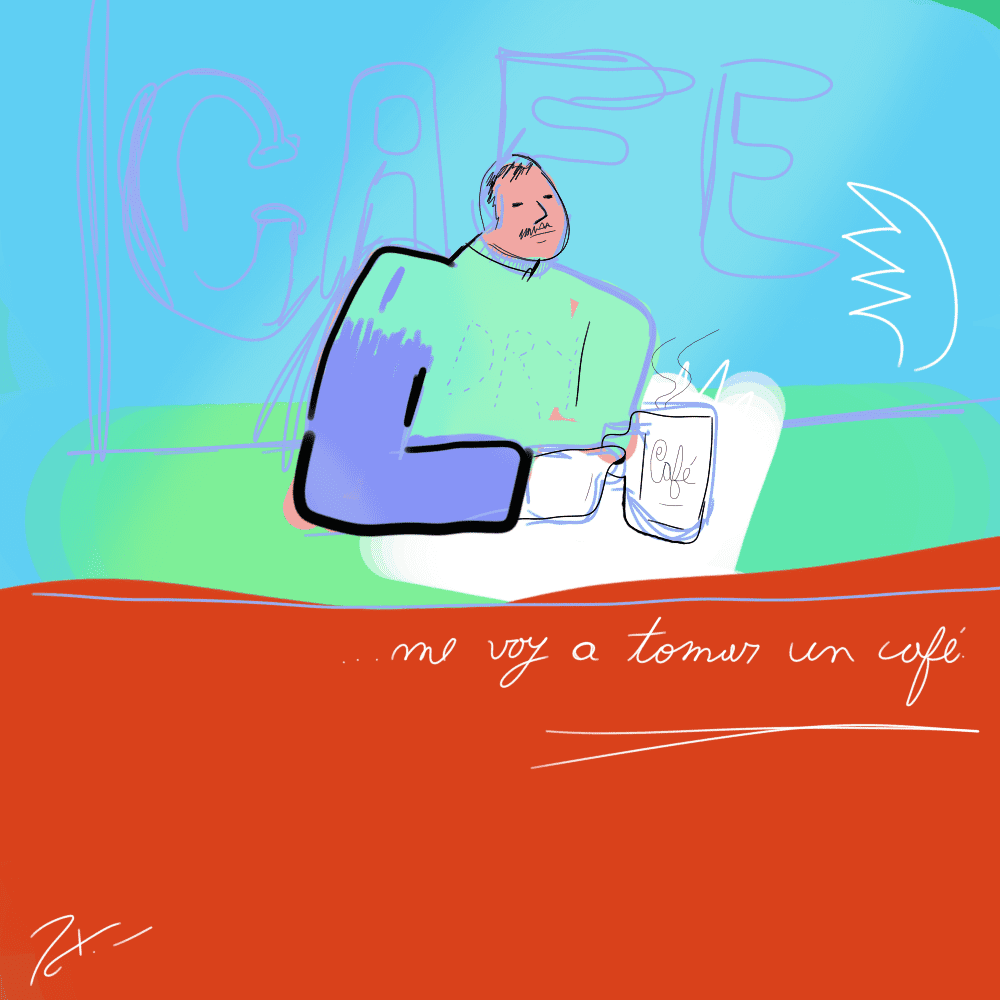 CAFE
Café
...me voy a tomar un café.